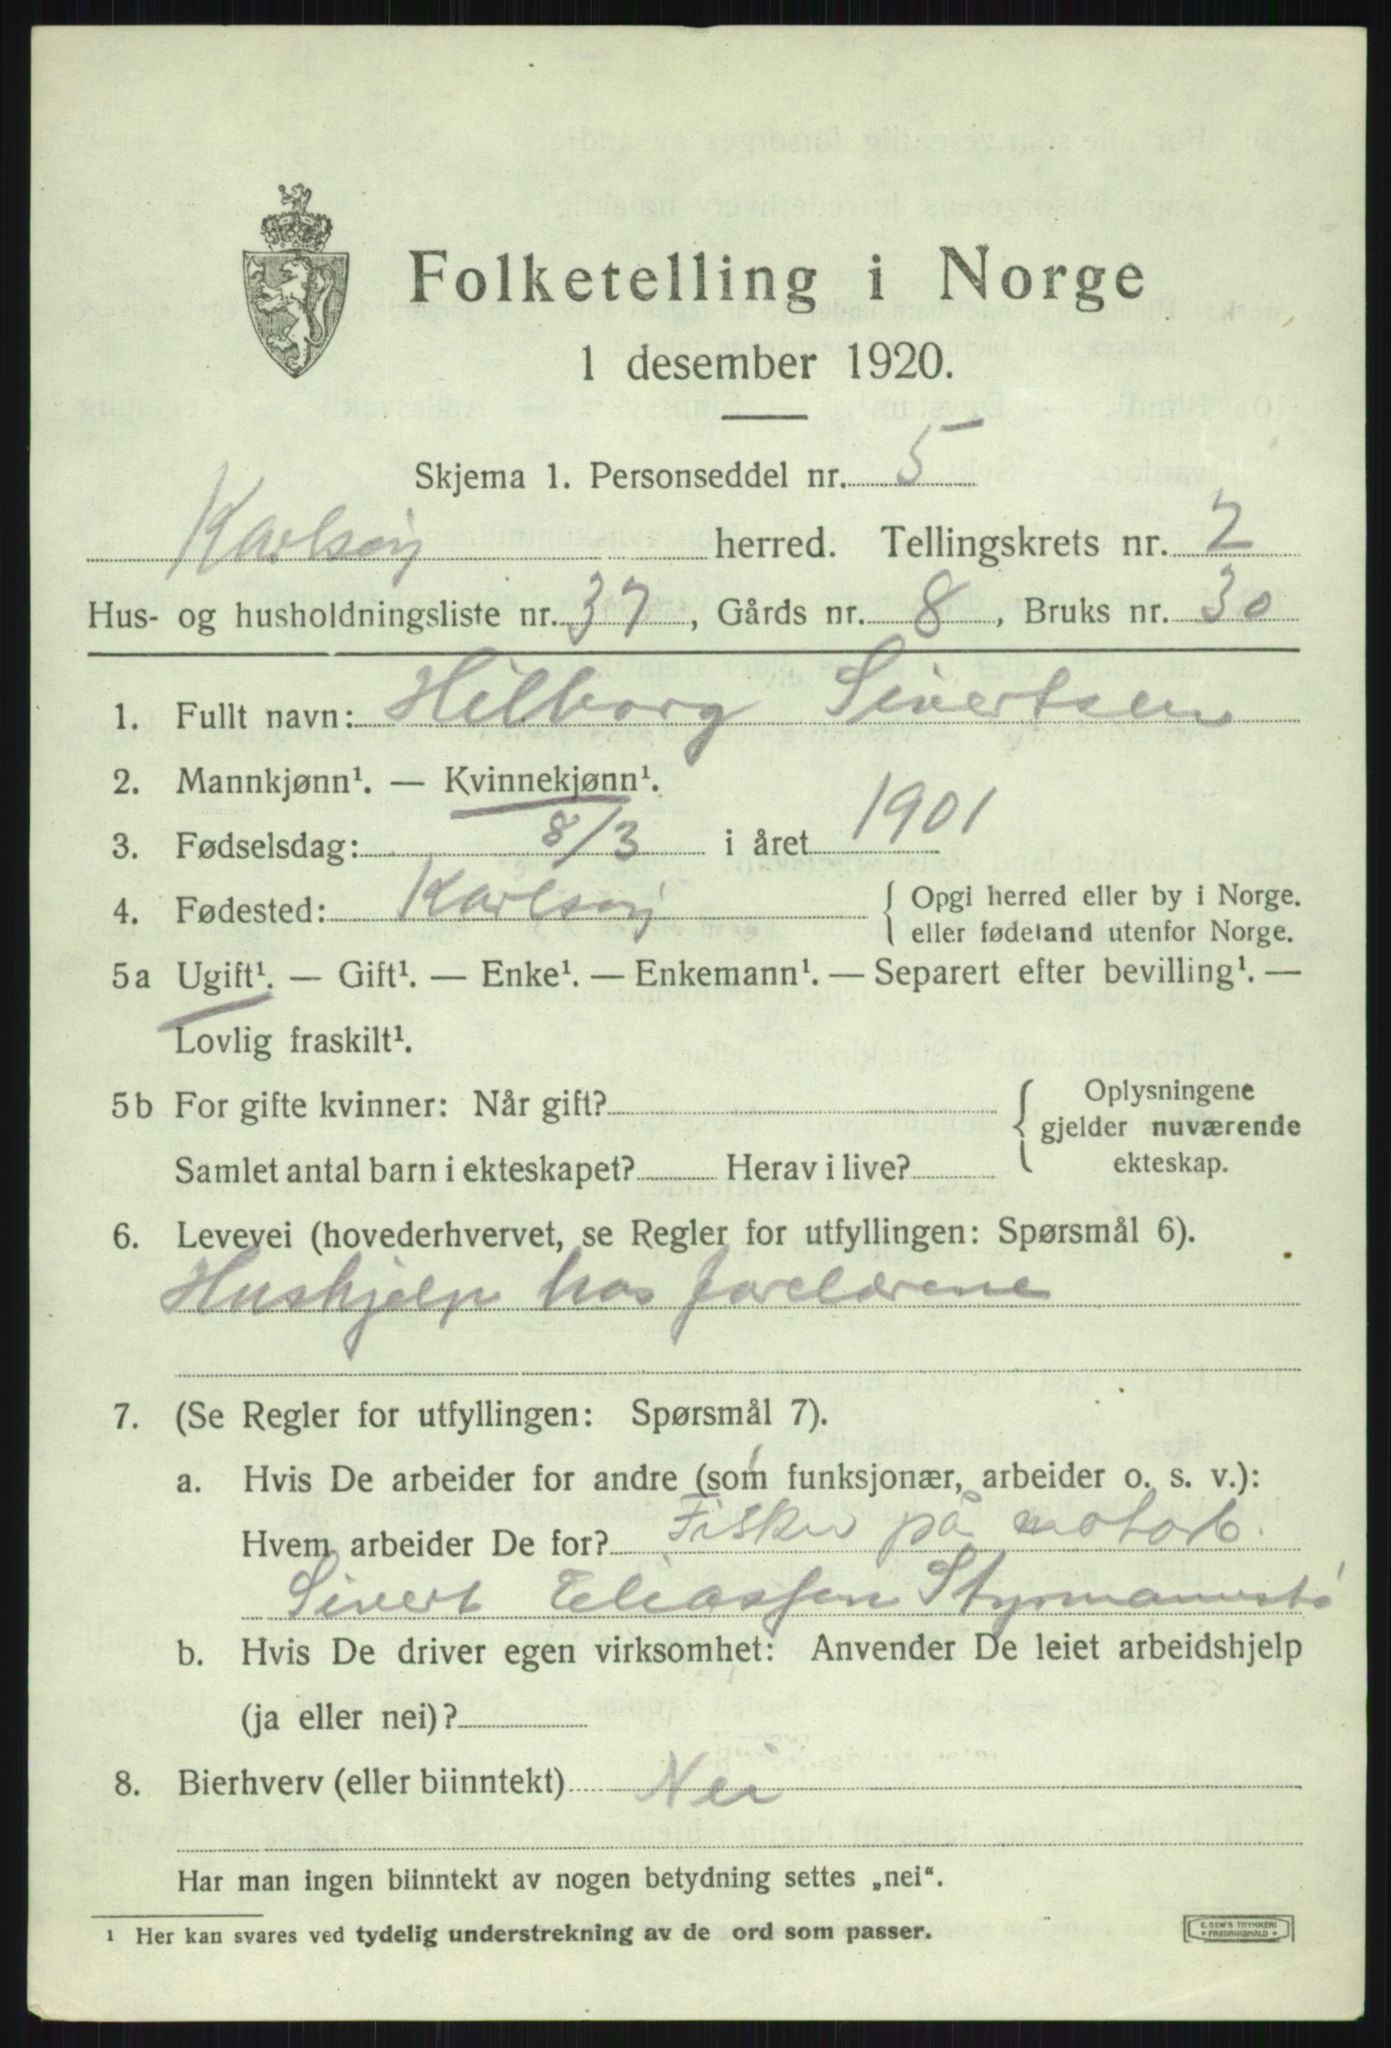 Folketelling i Norge
1 desember 1920.
Skjema 1. Personseddel nr. 5
Karlsøy herred. Tellingskrets nr. 2
Hus- og husholdningsliste nr. 37, Gårds nr. 8, Bruks nr. 30
1. Fullt navn: Hilborg Sivertsen
2. Mannkjønn¹. — Kvinnekjønn¹.
3. Fødselsdag: 8/3 i året 1901
4. Fødested: Karlsøy { Opgi herred eller by i Norge.
eller fødeland utenfor Norge.
5a Ugift¹. — Gift¹. — Enke¹. — Enkemann¹. — Separert efter bevilling¹. —
Lovlig fraskilt¹.
5b For gifte kvinner: Når gift? { Oplysningene
gjelder nuværende
Samlet antal barn i ekteskapet? Herav i live? ekteskap.
6. Levevei (hovederhvervet, se Regler for utfyllingen: Spørsmål 6).
Hushjelp hos foreldrene
7. (Se Regler for utfyllingen: Spørsmål 7).
a. Hvis De arbeider for andre (som funksjonær, arbeider o. s. v.):
Hvem arbeider De for? Fisker på motorb.
Sivert Eliassen
b. Hvis De driver egen virksomhet: Anvender De leiet arbeidshjelp
(ja eller nei)?
8. Bierhverv (eller biinntekt) Nei
Har man ingen biinntekt av nogen betydning settes „nei“.
¹ Her kan svares ved tydelig understrekning av de ord som passer.
E. SEM'S TRYKKERI
FREDRIKSHALD